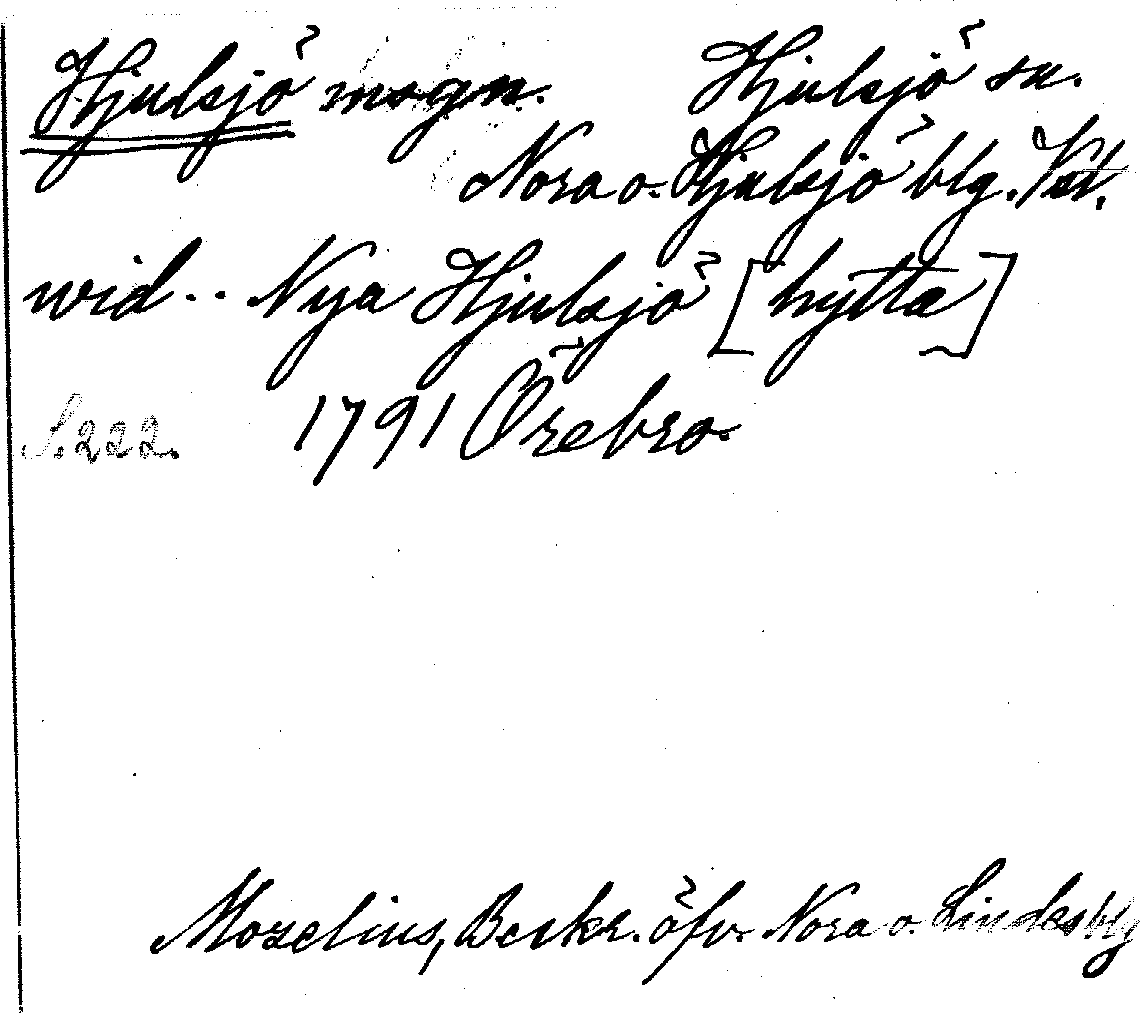 Hjulsjö msgn. Hjulsjö sn.
Nora o. Hjulsjö blg. Vstl.
wid.. Nya Hjulsjö [hytta]
S. 222. 1791 Örebro.
Mozelius, Beskr. öfv. Nora o. Lindesblg